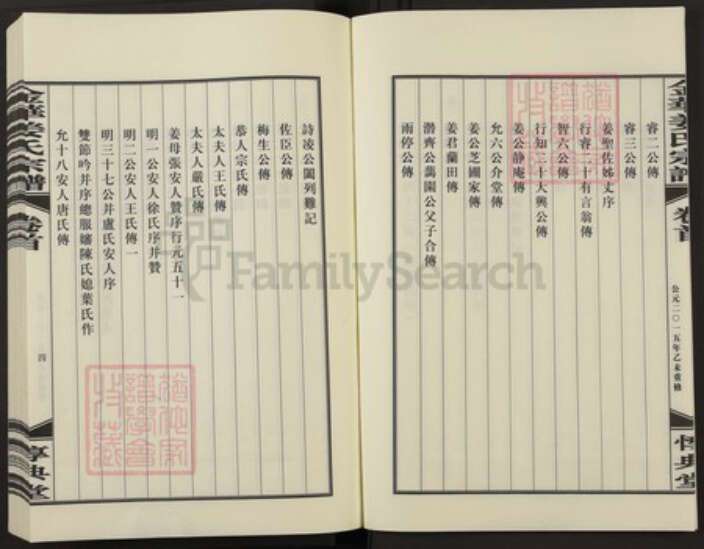 金華姜氏宗譜
卷首
公元二〇一五年乙未重修
惇典堂
睿二公傳
睿三公傳
姜聖佐姊丈序
行睿二十有言翁傳
智六公傳
行知三十大興公傳
姜公靜庵傳
允六公介堂傳
姜公芝圃家傳
姜君蘭田傳
潛齊公藹園公父子合傳
雨停公傳
詩凌公閫列難記
佐臣公傳
梅生公傳
恭人宗氏傳
太夫人王氏傳
太夫人嚴氏傳
姜母張安人贊序行元五十一
明一公安人徐氏序并贊
明二公安人王氏傳一
明三十七公并盧氏安人序
雙節吟并序總服嬸陳氏媳葉氏作
允十八安人唐氏傳
金華姜氏宗譜
卷首
四
惇典堂
FamilySearch